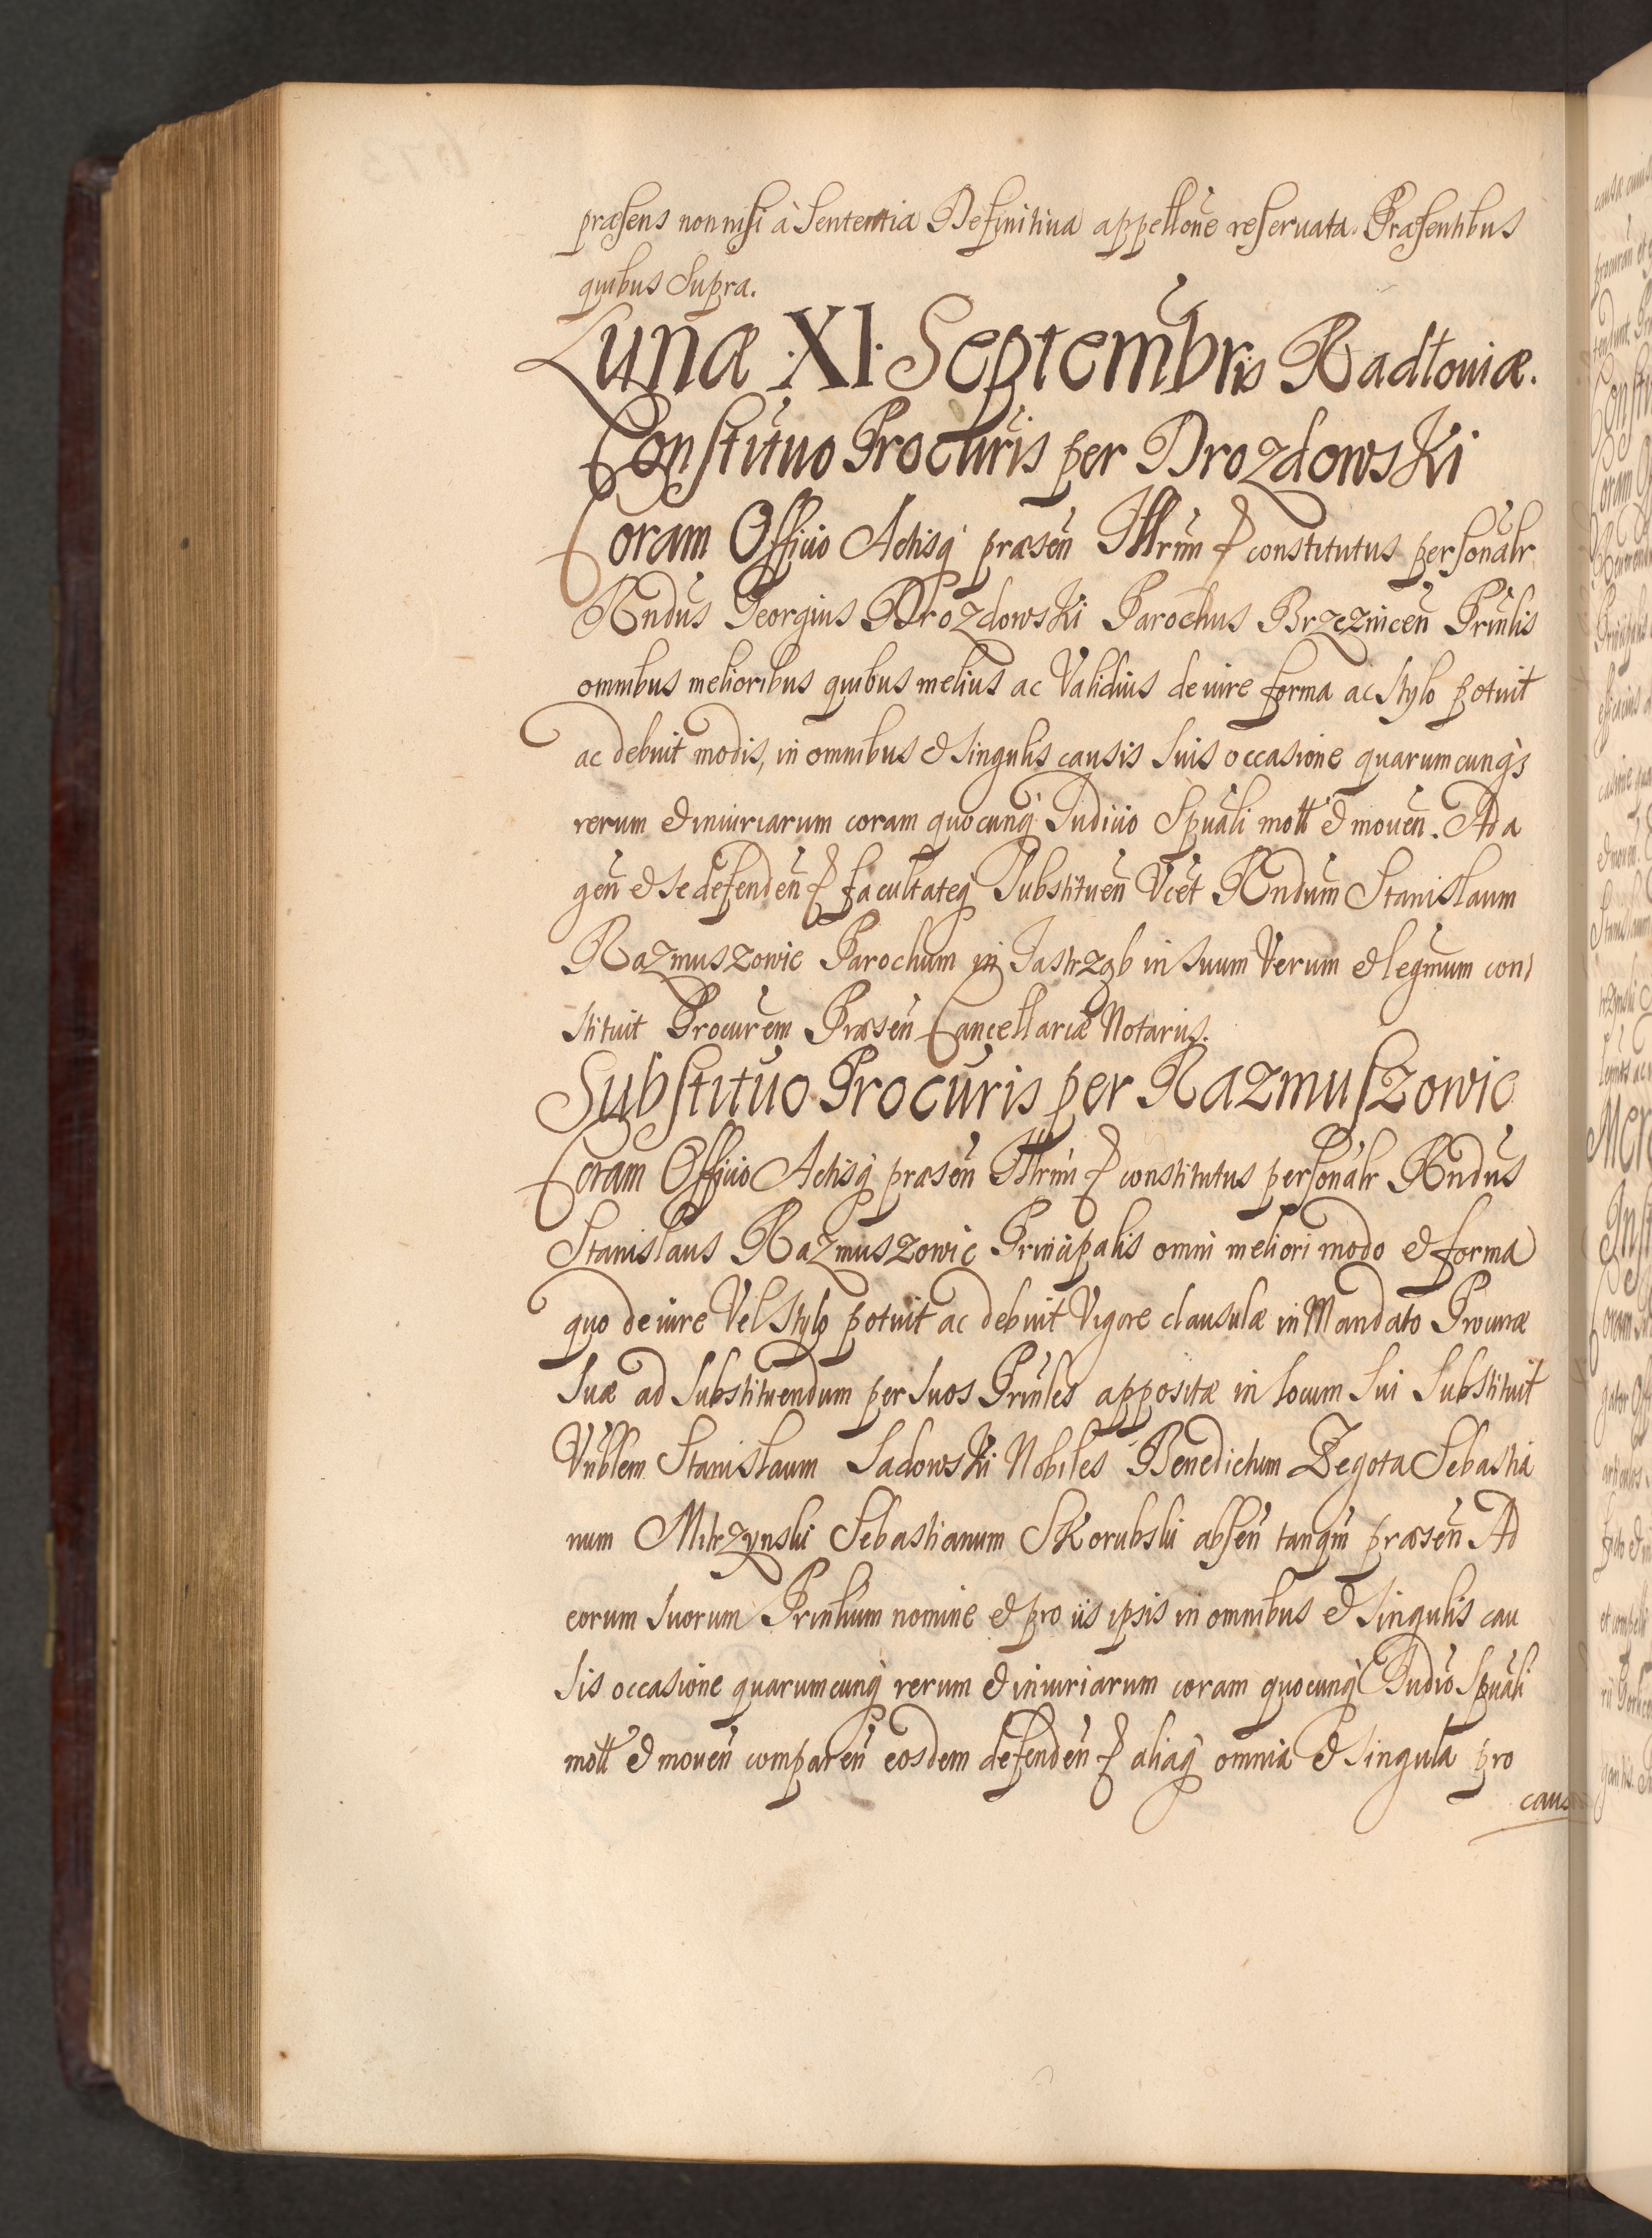 præsens non nisi à Sententia Definitiua appellõne reseruata. Præsentibus
quibus Supra.
Lunæ XI Septembris Radłoviæ.
Constituo Procuris per Drozdowski
Coram Officio Actisq́ præseñ Illrim & constitutus personalr
Rndus Georgius Drozdowski Parochus Brzezniceñ Prinlis
omnibus melioribus quibus melius ac Validius de iure forma ac stylo potuit
ac debuit modis, in omnibus & singulis causis suis occasione quarumcunq3
rerum & iniuriarum coram quocunq́ Iudicio Spuali mott & moueñ. Ad a
geñ & se defendeñ & facultateq́ Substitueñ Vcet Rndum Stanislaum
Razmuszowic Parochum in Jastrząb in suum Verum & legmum con
stituit Procurem Præseñ Cancellariæ Notarius.
Substituo Procuris per Razmuszowic
Coram Officio Actisq́ præseñ Illrim & constitutus personalr Rndus
Stanislaus Razmuszowic Principalis omni meliori modo & forma
quo de iure Vel Stylo potuit ac debuit Vigore clausulæ in Mandato Procuræ
suæ ad substituendum per suos Prinles appositæ in locum sui substituit
Vnblem Stanislaum Sadowski Nobiles Benedictum Zegota Sebastia
num Mitrzynski Sebastianum Skorubski abseñ tanqm præseñ Ad
eorum suorum Prinlium nomine & pro iis ipsis in omnibus & singulis cau
sis occasione quarumcunq́ rerum & iniuriarum coram quocunq́ Iudio Spuali
mott & moueñ compareñ eosdem defendeñ & aliaq́ omnia & singula pro
caus